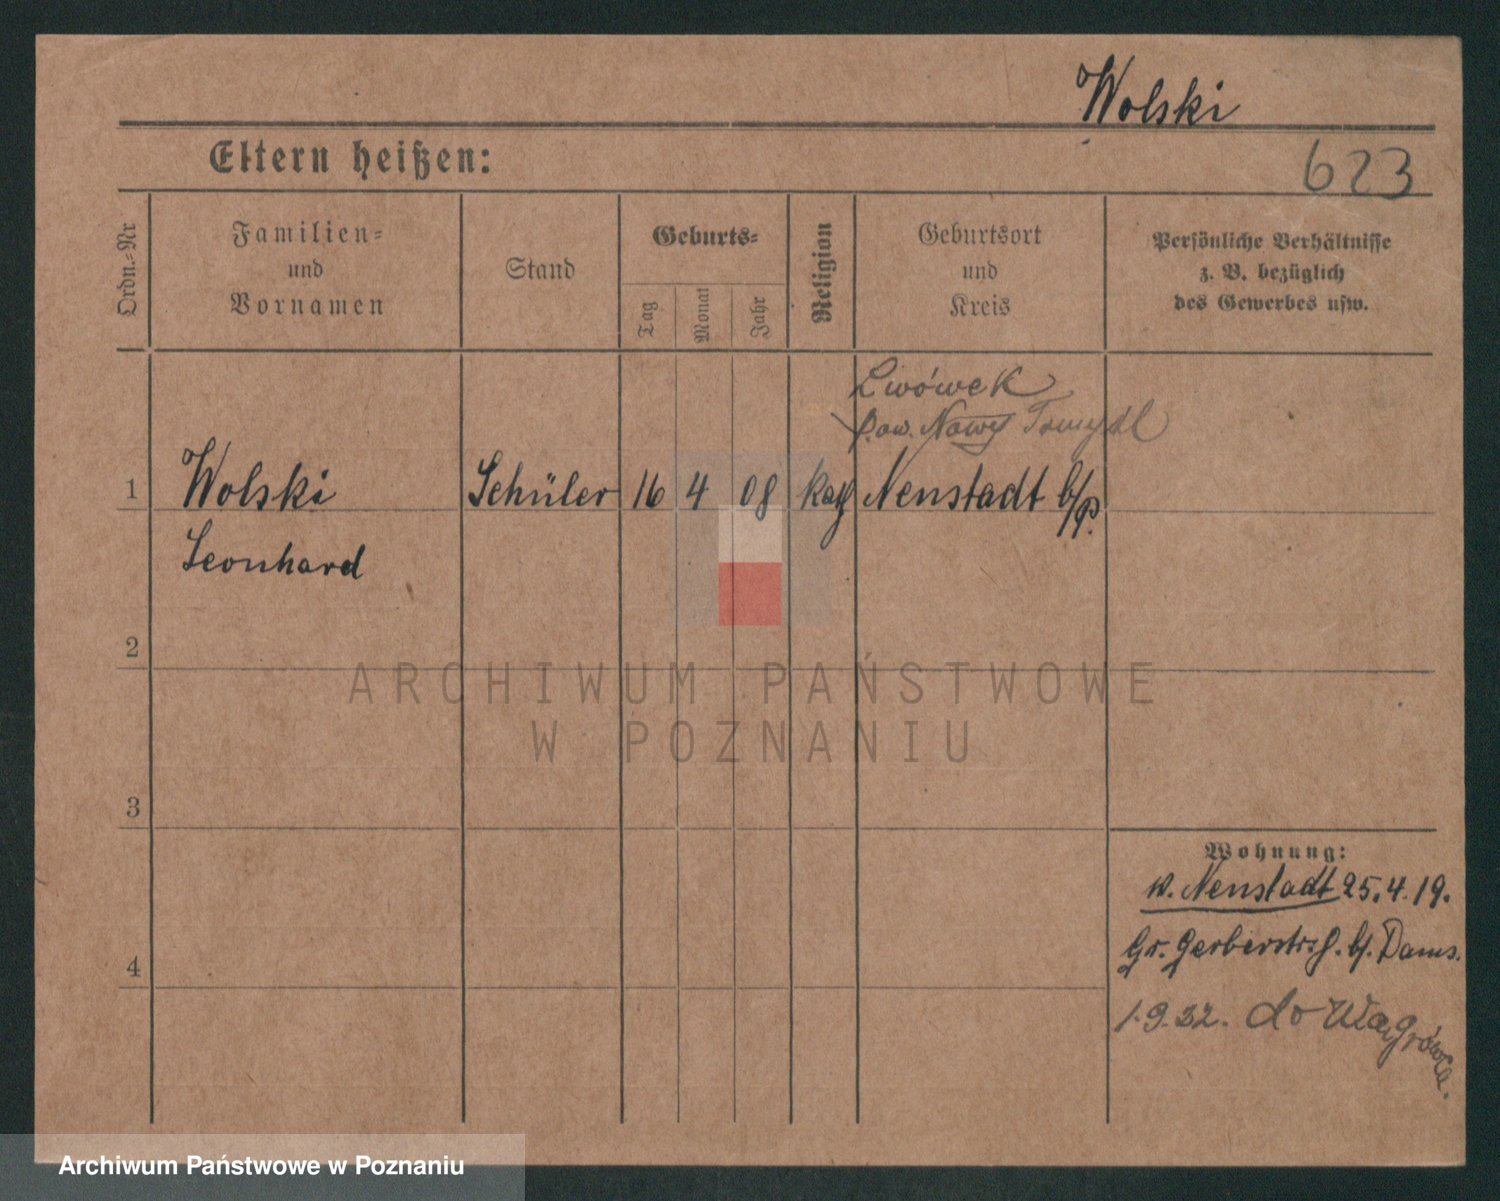 Wolski
Eltern heißen:
623
Ordn.-Nr
Familien-
und
Vornamen
Stand
Geburts-
Tag
Monat
Jahr
Religion
Geburtsort
und
Kreis
Persönliche Verhältnisse
z. B. bezüglich
des Gewerbes usw.
Lwówek
pow. Nowy Tomyśl
1 Wolski Schüler 16 4 08 kath Neustadt b/P.
Leonhard
2
ARCHIWUM PAŃSTWOWE
W POZNANIU
3
Wohnung:
v. Neustadt 25.4.19.
Gr. Gerberstr. b/. Dams.
4
1.9.32. do Wągrówca.
Archiwum Państwowe w Poznaniu